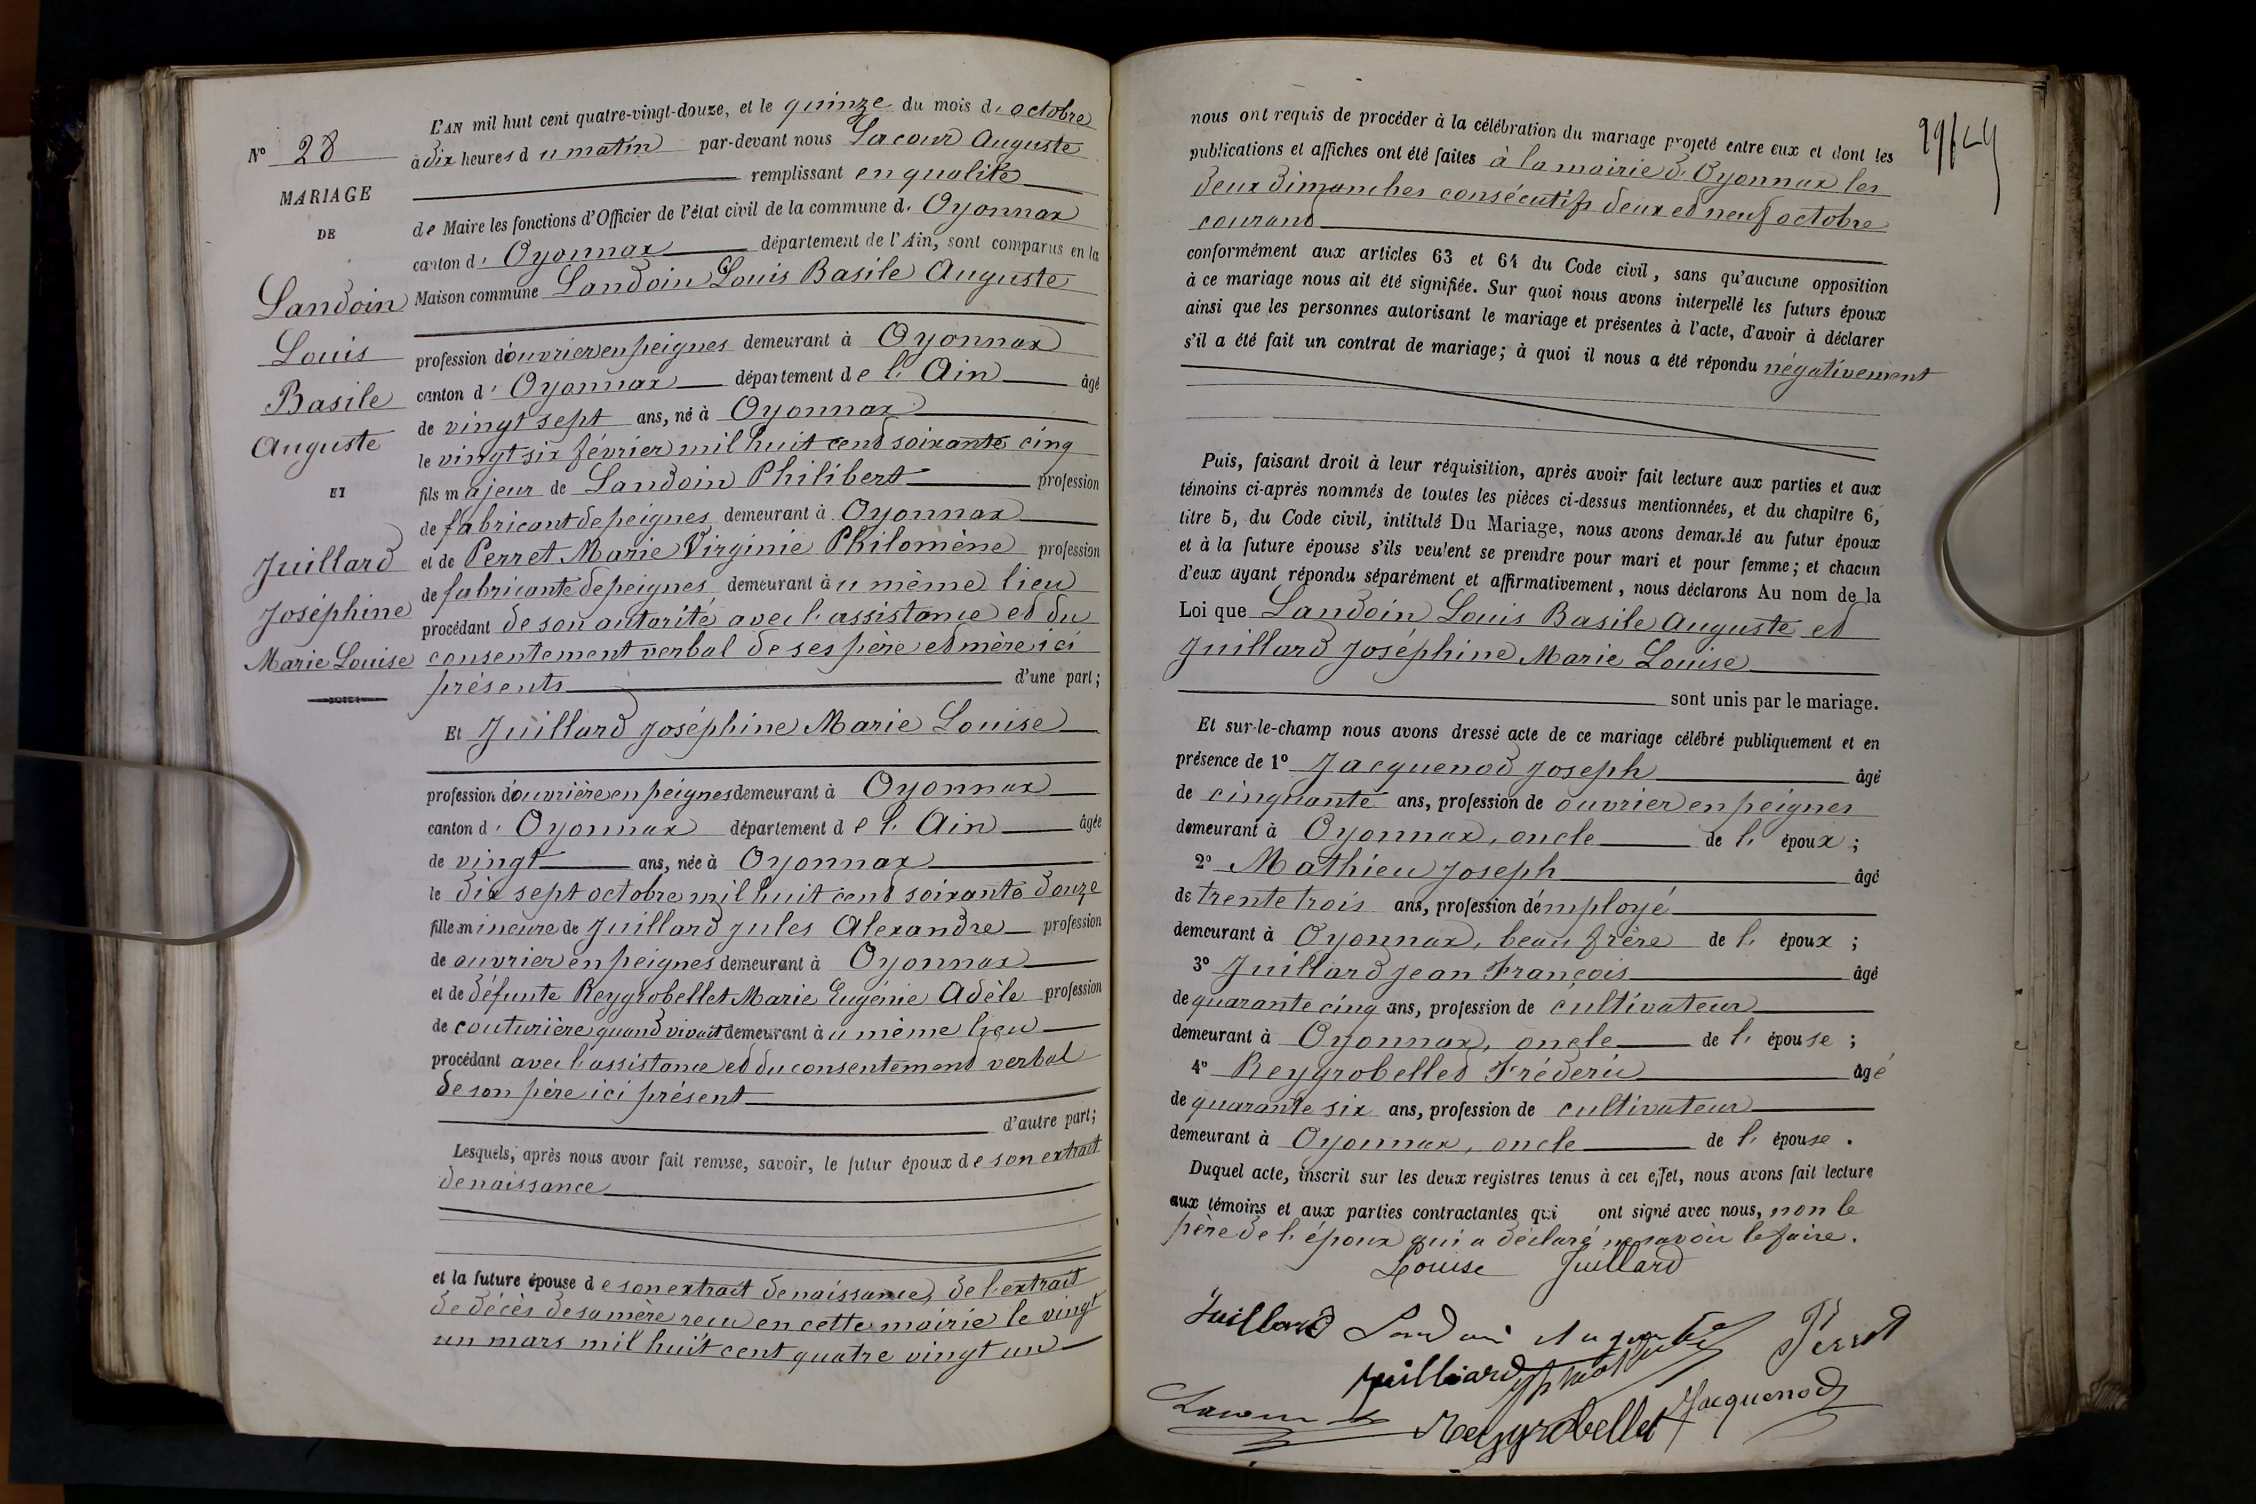 N° 28
MARIAGE
DE
Landoin
Louis
Basile
Auguste
ET
Juillard
Joséphine
Marie Louise
L'AN mil huit cent quatre-vingt-douze, et le quinze du mois d'octobre
à dix heures du matin par-devant nous Lacour Auguste
remplissant en qualité
de Maire les fonctions d'Officier de l'état civil de la commune d'Oyonnax
canton d'Oyonnax département de l'Ain, sont comparus en la
Maison commune Landoin Louis Basile Auguste
profession d'ouvrier en peignes demeurant à Oyonnax
canton d'Oyonnax département de l'Ain âgé
de vingt sept ans, né à Oyonnax
le vingt six février mil huit cent soixante cinq
fils majeur de Landoin Philibert profession
de fabricant de peignes demeurant à Oyonnax
et de Perret Marie Virginie Philomène profession
de fabricante de peignes demeurant au même lieu
procédant de son autorité avec l'assistance et du
consentement verbal de ses père et mère ici
présents d'une part;
Et Juillard Joséphine Marie Louise
profession d'ouvrière en peignes demeurant à Oyonnax
canton d'Oyonnax département de l'Ain âgée
de vingt ans, née à Oyonnax
le dix sept octobre mil huit cent soixante douze
fille mineure de Juillard Jules Alexandre profession
de ouvrier en peignes demeurant à Oyonnax
et de défunte Reygrobellet Marie Eugénie Adèle profession
de couturière quand vivait demeurant au même lieu
procédant avec l'assistance et du consentement verbal
de son père ici présent
d'autre part;
Lesquels, après nous avoir fait remise, savoir, le futur époux de son extrait
de naissance
et la future épouse de son extrait de naissance, de l'extrait
de décès de sa mère reçu en cette mairie le vingt
un mars mil huit cent quatre vingt un
nous ont requis de procéder à la célébration du mariage projeté entre eux et dont les
publications et affiches ont été faites à la mairie d'Oyonnax les
deux dimanches consécutifs deux et neuf octobre
courant
conformément aux articles 63 et 64 du Code civil, sans qu'aucune opposition
à ce mariage nous ait été signifiée. Sur quoi nous avons interpellé les futurs époux
ainsi que les personnes autorisant le mariage et présentes à l'acte, d'avoir à déclarer
s'il a été fait un contrat de mariage; à quoi il nous a été répondu négativement
Puis, faisant droit à leur réquisition, après avoir fait lecture aux parties et aux
témoins ci-après nommés de toutes les pièces ci-dessus mentionnées, et du chapitre 6,
titre 5, du Code civil, intitulé Du Mariage, nous avons demandé au futur époux
et à la future épouse s'ils veulent se prendre pour mari et pour femme; et chacun
d'eux ayant répondu séparément et affirmativement, nous déclarons Au nom de la
Loi que Landoin Louis Basile Auguste et
Juillard Joséphine Marie Louise
sont unis par le mariage.
Et sur-le-champ nous avons dressé acte de ce mariage célébré publiquement et en
présence de 1° Jacquenod Joseph âgé
de cinquante ans, profession de ouvrier en peignes
demeurant à Oyonnax, oncle de l'époux;
2° Mathieu Joseph âgé
de trente trois ans, profession d'employé
demeurant à Oyonnax, beau frère de l'époux;
3° Juillard Jean François âgé
de quarante cinq ans, profession de cultivateur
demeurant à Oyonnax, oncle de l'épouse;
4° Reygrobellet Fréderic âgé
de quarante six ans, profession de cultivateur
demeurant à Oyonnax, oncle de l'épouse.
Duquel acte, inscrit sur les deux registres tenus à cet effet, nous avons fait lecture
aux témoins et aux parties contractantes qui ont signé avec nous, non le
père de l'époux qui a déclaré ne savoir le faire.
Louise Juillard
Juillard Landoin Auguste Perret
Juilliard
Lacour Reygrobellet Jacquenod